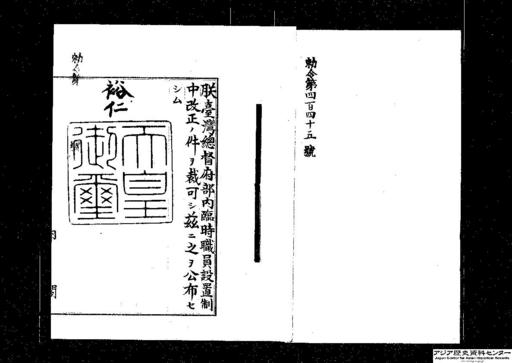 勅令第四百四十五號
朕臺灣總督府部內臨時職員設置制
中改正ノ件ヲ裁可シ茲ニ之ヲ公布セ
シム
裕仁
天皇
御璽
アジア歴史資料センター
Japan Center for Asian Historical Records